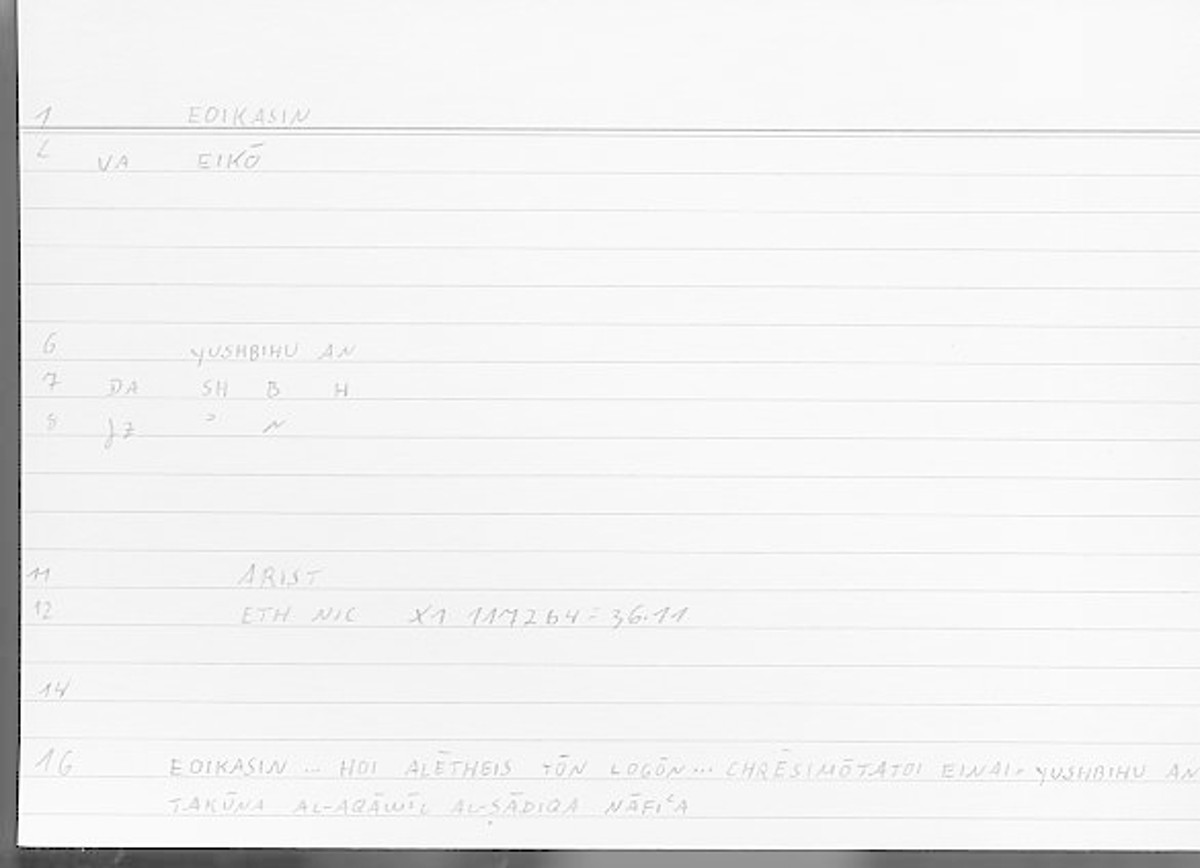 1 EOIKASIN
2 VA EIKŌ
6 YUSHBIHU AN
7 DA SH B H
8 JZ ʾ N
11 ARIST
12 ETH NIC X1 1172b4 = 36.11
14
16 EOIKASIN ... HOI ALĒTHEIS TŌN LOGŌN ... CHRĒSIMŌTATOI EINAI - YUSHBIHU AN
TAKŪNA AL-AQĀWĪL AL-ṢĀDIQA NĀFIʿA